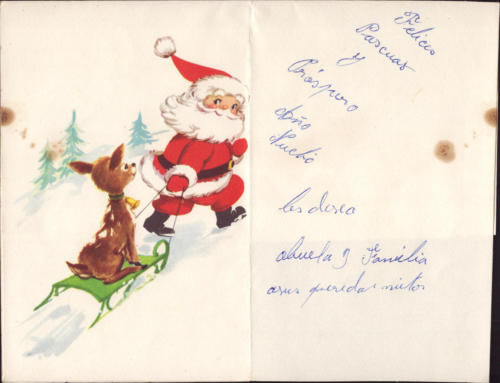 Felicis
Pascuas
y
Próspero
Año
Nuebo
les desea
abuela y Familia
asus queridos nietos